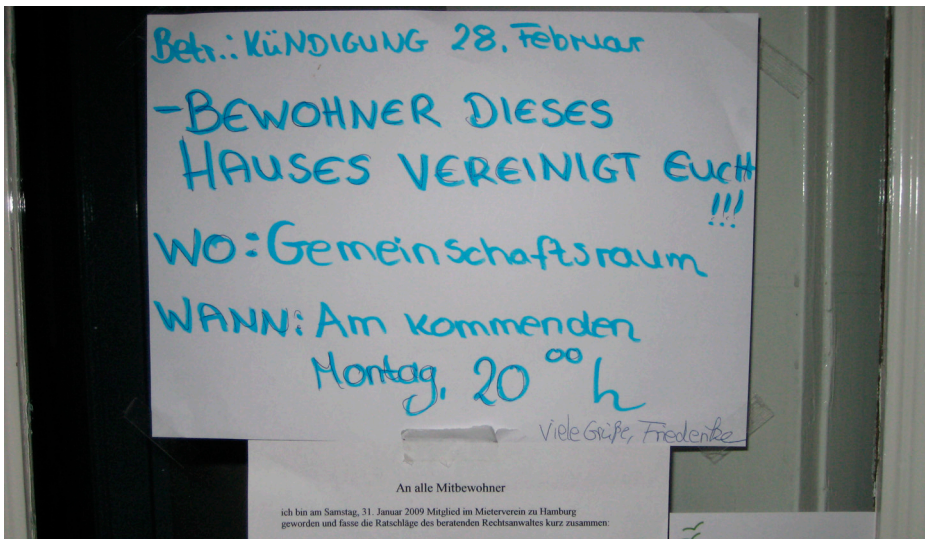 Betr.: KÜNDIGUNG 28. Februar
- BEWOHNER DIESES
HAUSES VEREINIGT EUCH
!!!
WO: Gemeinschaftsraum
WANN: Am kommenden
Montag, 20 00 h
Viele Grüße, Friederike
An alle Mitbewohner
ich bin am Samstag, 31. Januar 2009 Mitglied im Mieterverein zu Hamburg
geworden und fasse die Ratschläge des beratenden Rechtsanwaltes kurz zusammen: